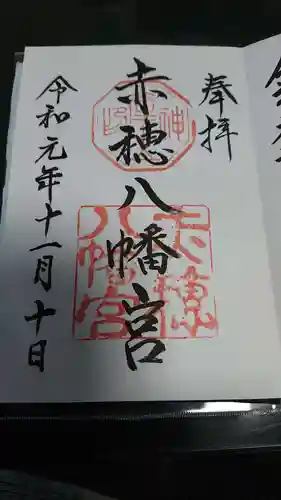 奉拝
赤穂八幡宮
令和元年十一月十日
八幡宮